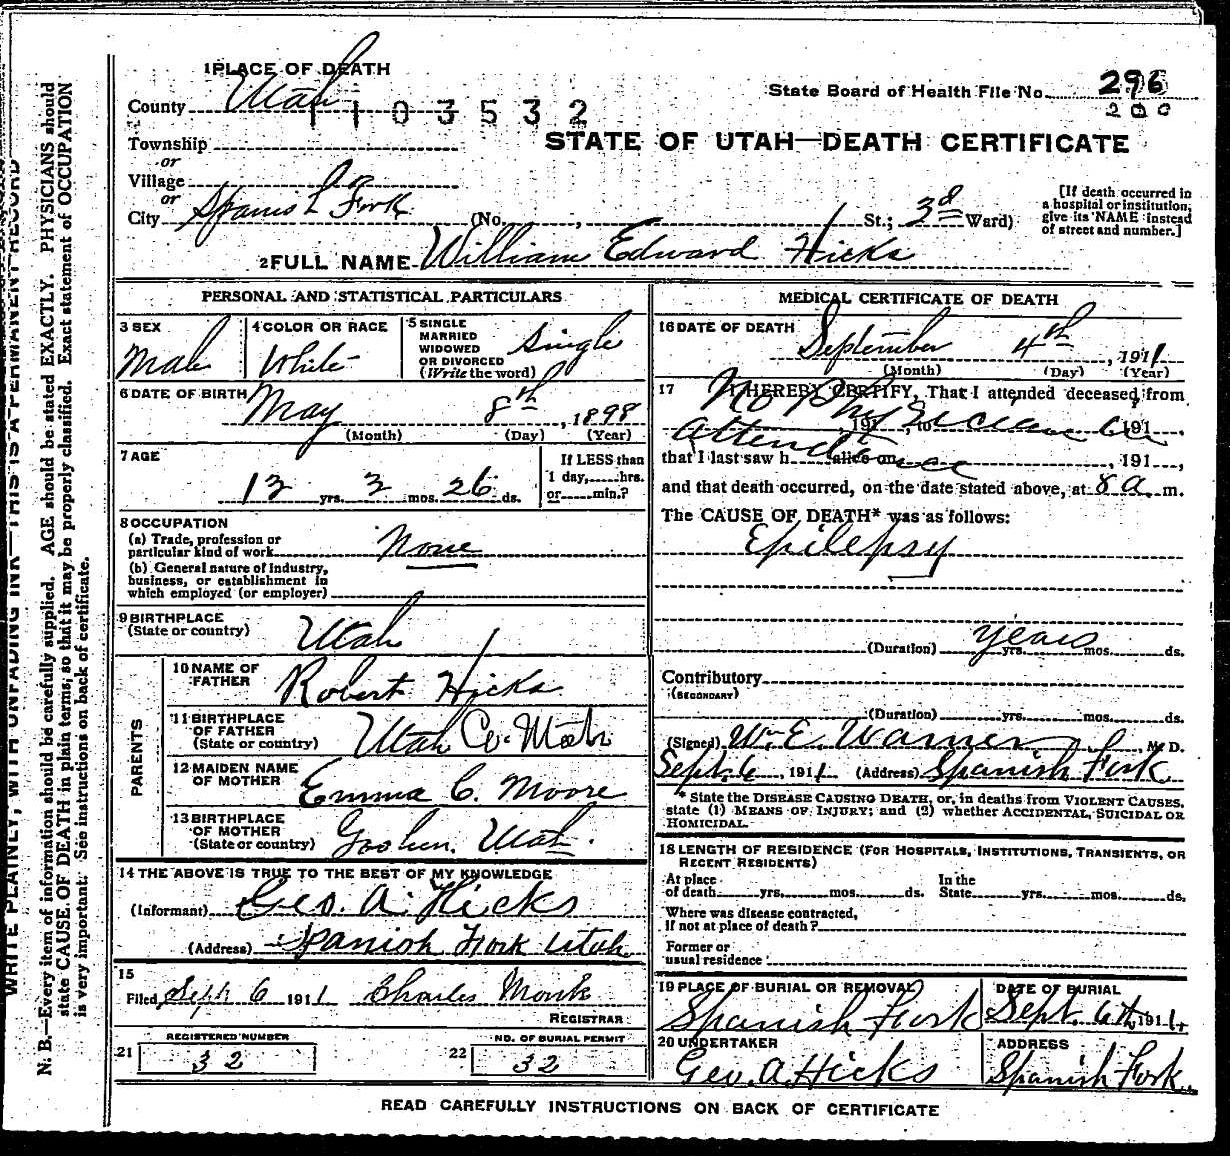 1 PLACE OF DEATH
County Utah
1103532
State Board of Health File No. 296
200
Township
or
Village
or
City Spanish Fork (No. , St.; 3d Ward)
STATE OF UTAH—DEATH CERTIFICATE
[If death occurred in
a hospital or institution,
give its NAME instead
of street and number.]
2 FULL NAME William Edward Hicks
PERSONAL AND STATISTICAL PARTICULARS
3 SEX
Male
4 COLOR OR RACE
White
5 SINGLE
MARRIED
WIDOWED
OR DIVORCED
(Write the word)
Single
6 DATE OF BIRTH
May 8th, 1898
(Month) (Day) (Year)
7 AGE
13 yrs. 3 mos. 26 ds.
If LESS than
1 day, hrs.
or min.?
8 OCCUPATION
(a) Trade, profession or
particular kind of work None
(b) General nature of industry,
business, or establishment in
which employed (or employer)
9 BIRTHPLACE
(State or country) Utah
PARENTS
10 NAME OF
FATHER Robert Hicks
11 BIRTHPLACE
OF FATHER
(State or country) Utah Co. Utah
12 MAIDEN NAME
OF MOTHER Emma C. Moore
13 BIRTHPLACE
OF MOTHER
(State or country) Goshen. Utah.
14 THE ABOVE IS TRUE TO THE BEST OF MY KNOWLEDGE
(Informant) Geo. A. Hicks
(Address) Spanish Fork Utah.
15
Filed Sept 6 1911 Charles Monk
REGISTRAR
REGISTERED NUMBER
21 32
NO. OF BURIAL PERMIT
22 32
MEDICAL CERTIFICATE OF DEATH
16 DATE OF DEATH
September 4th, 1911
(Month) (Day) (Year)
17 I HEREBY CERTIFY, That I attended deceased from
No Physician in
, 191 , to , 191 ,
attendance
that I last saw h alive on , 191 ,
and that death occurred, on the date stated above, at 8 a. m.
The CAUSE OF DEATH* was as follows:
Epilepsy
(Duration) years yrs. mos. ds.
Contributory
(SECONDARY)
(Duration) yrs. mos. ds.
(Signed) Wm. E. Warner, M. D.
Sept. 6, 1911 (Address) Spanish Fork
* State the DISEASE CAUSING DEATH, or, in deaths from VIOLENT CAUSES,
state (1) MEANS OF INJURY; and (2) whether ACCIDENTAL, SUICIDAL OR
HOMICIDAL.
18 LENGTH OF RESIDENCE (FOR HOSPITALS, INSTITUTIONS, TRANSIENTS, OR
RECENT RESIDENTS)
At place
of death yrs. mos. ds.
In the
State yrs. mos. ds.
Where was disease contracted,
if not at place of death?
Former or
usual residence
19 PLACE OF BURIAL OR REMOVAL
Spanish Fork
DATE OF BURIAL
Sept. 6th, 1911.
20 UNDERTAKER
Geo. A. Hicks
ADDRESS
Spanish Fork.
READ CAREFULLY INSTRUCTIONS ON BACK OF CERTIFICATE
WRITE PLAINLY, WITH UNFADING INK—THIS IS A PERMANENT RECORD
N. B.—Every item of information should be carefully supplied. AGE should be stated EXACTLY. PHYSICIANS should
state CAUSE OF DEATH in plain terms, so that it may be properly classified. Exact statement of OCCUPATION
is very important. See instructions on back of certificate.